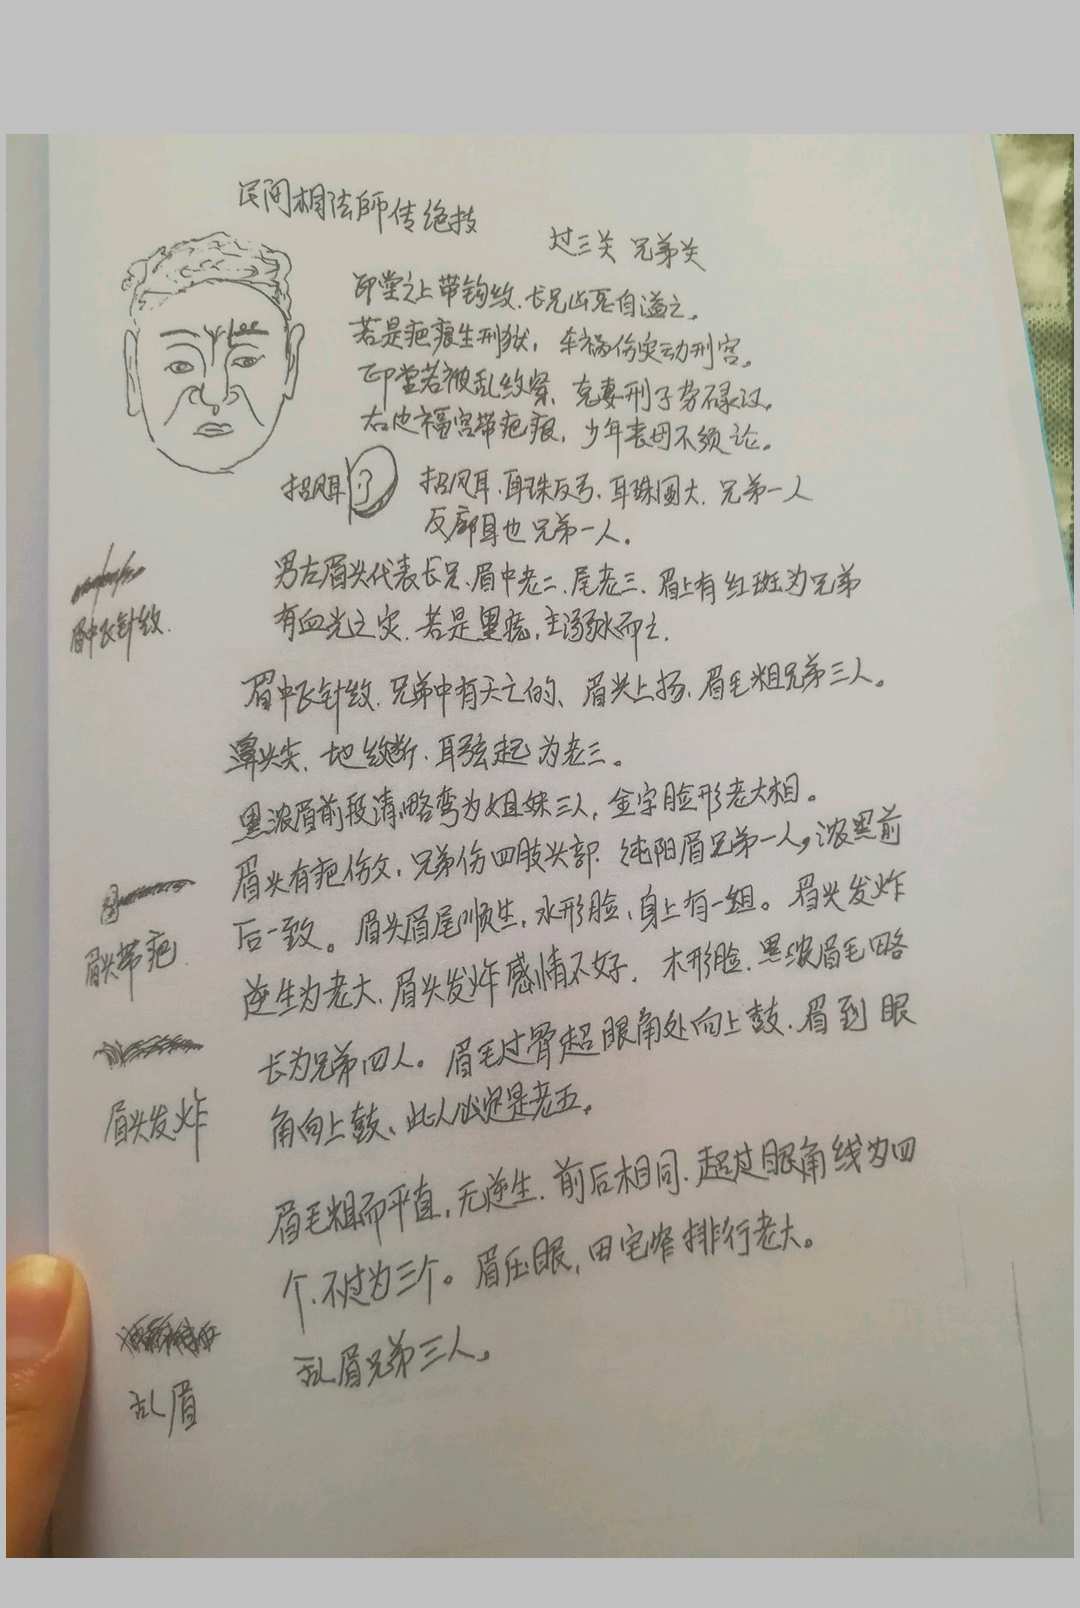 民间相法師传绝技
过三关 兄弟关
印堂之上带钩纹.长兄凶死自溢亡。
若是疤痕生刑狱，车祸伤灾动刑宫。
印堂若被乱纹穿，克妻刑子劳禄
右边福宫带疤痕，少年丧母不须论。
招风耳
招风耳.耳珠反弓.耳珠圆大.兄弟一人
反廓耳也兄弟一人。
男左眉头代表长兄.眉中老二.尾老三.眉上有红斑为兄弟
有血光之灾.若是黑痣.主溺水而亡.
眉中飞针纹.
眉中飞针纹.兄弟中有夭亡的、眉头上扬.眉毛粗兄弟三人。
鼻头尖.地纹断.耳弦起为老三。
黑浓眉前段清略弯为姐妹三人，金字脸形老大相。
眉头有疤伤文，兄弟伤四肢头部.纯阳眉兄弟一人，浓黑前
后一致。眉头眉尾顺生，水形脸，身上有一姐。眉头发炸
眉头带疤.
逆生为老大，眉头发炸感情不好.木形脸.黑浓眉毛略
长为兄弟四人。眉毛过骨超眼角处向上鼓.眉到眼
眉头发炸
角向上鼓、此人必定是老五。
眉毛粗而平直，无逆生.前后相同.超过眼角线为四
个.不过为三个。眉压眼，田宅窄排行老大。
乱眉
乱眉兄弟三人。